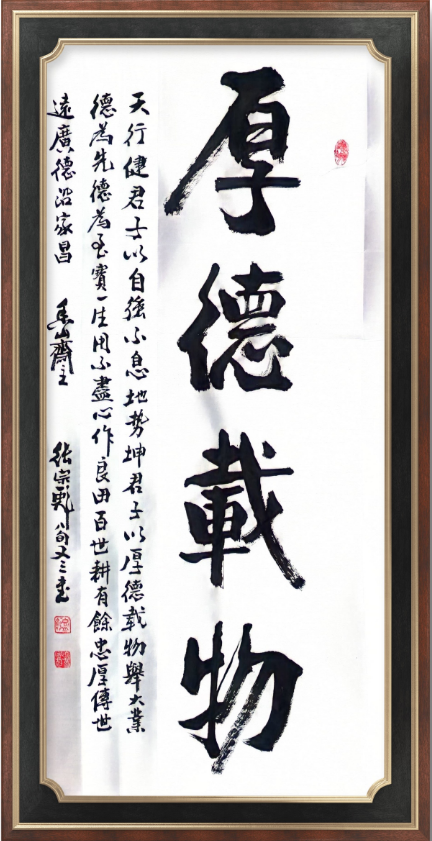 厚德載物
天行健君子以自強不息地勢坤君子以厚德載物舉大業
德為先德為至寶一生用不盡心作良田百世耕有餘忠厚傳世
遠廣德沿家昌
齋主
張宗彪八旬又三書